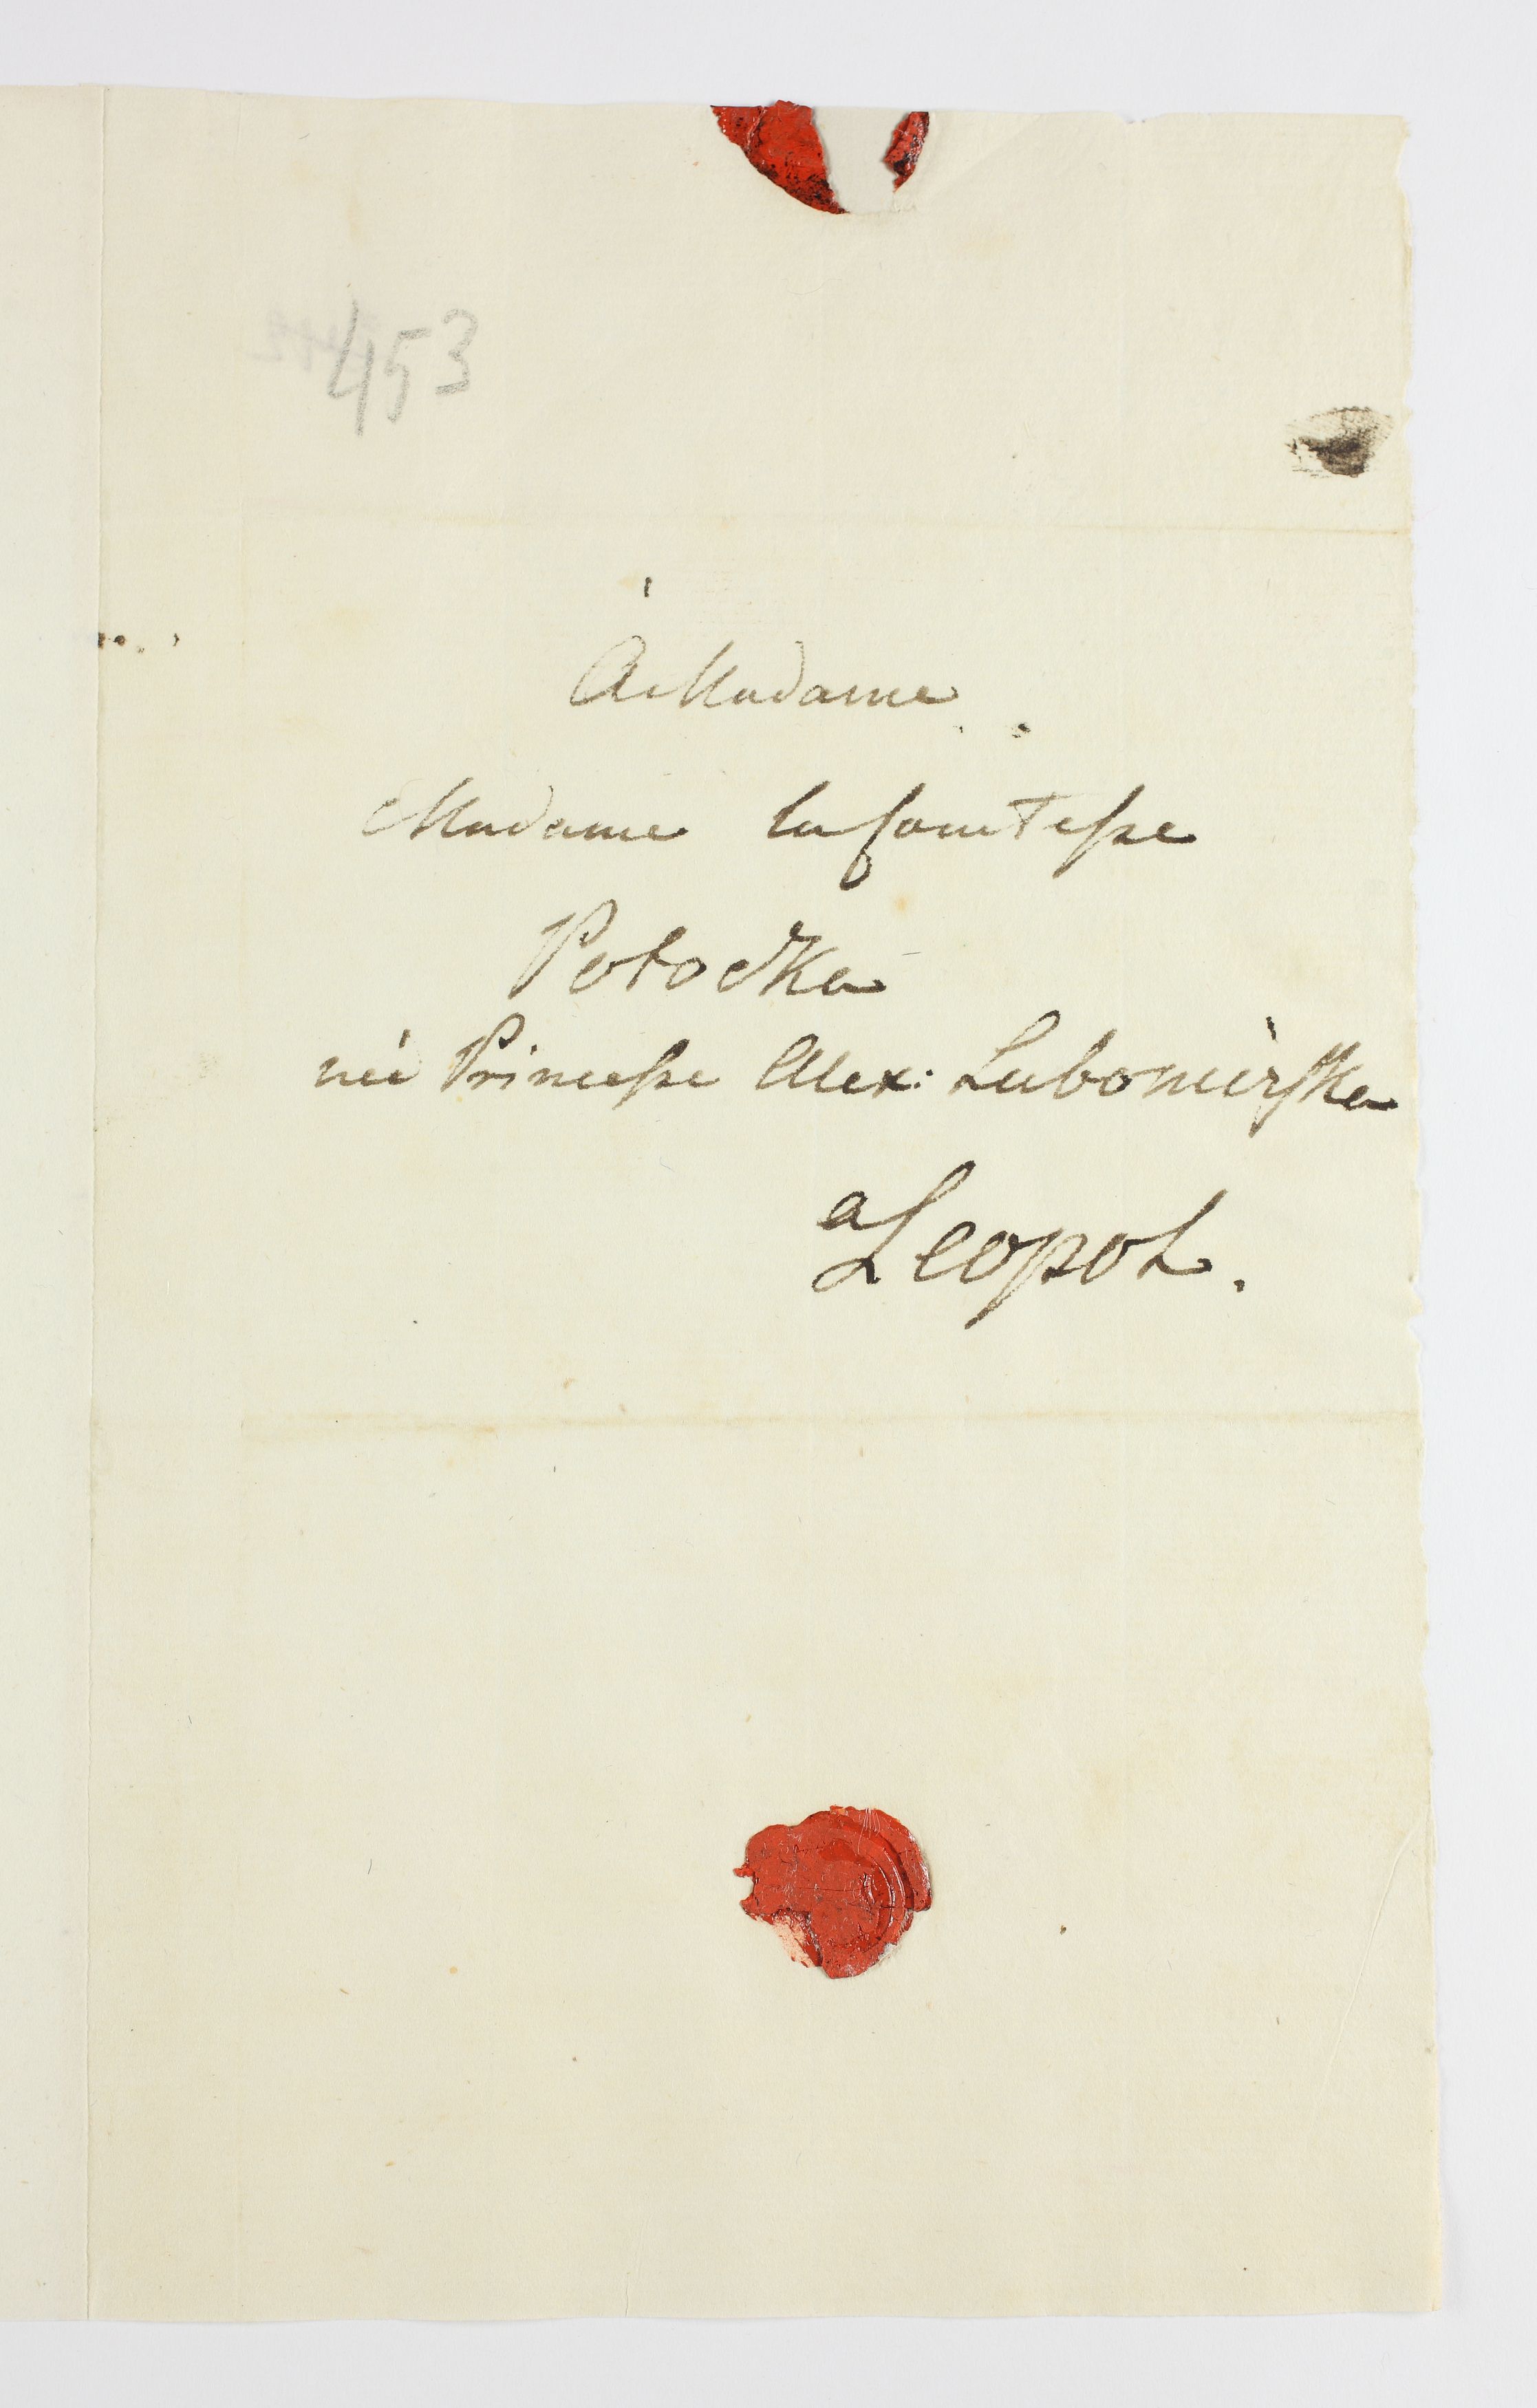 453
A Madame
Madame la Comtesse
Potocka
née Princesse Alex: Lubomirska
a Leopol.